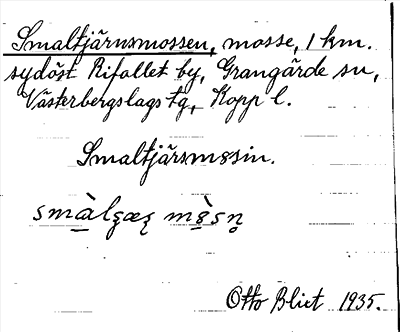 Smaltjärnsmossen, mosse, 1 km.
sydöst Rifallet by, Grangärde sn,
Västerbergslags tg, Kopp l.
Smaltjärsmosin.
Otto Blixt 1935.